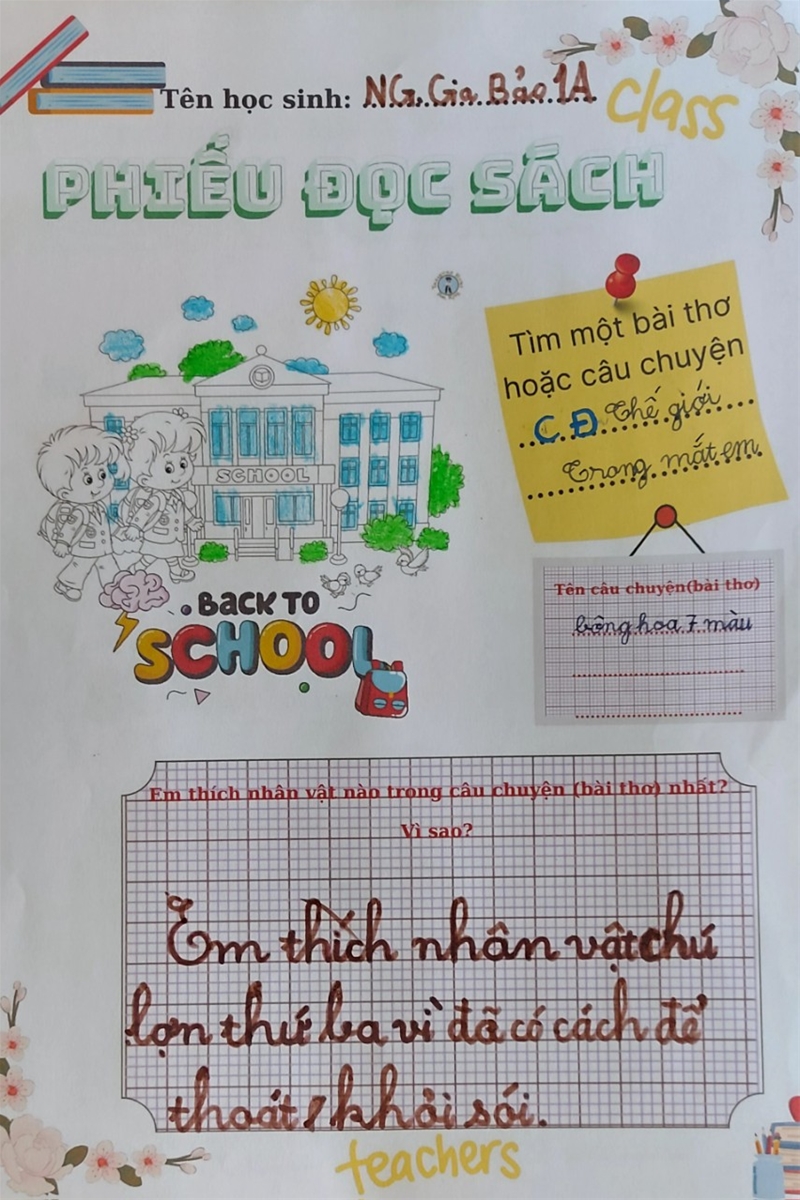 Tên học sinh: NG. Gia Bảo 1A
class
PHIẾU ĐỌC SÁCH
Tìm một bài thơ
hoặc câu chuyện
CĐ Thế giới
Trong mắt em
SCHOOL
BACK TO
SCHOOL
Tên câu chuyện(bài thơ)
bông hoa 7 màu
Em thích nhân vật nào trong câu chuyện (bài thơ) nhất?
Vì sao?
Em thích nhân vật chú
lợn thứ ba vì đã có cách để
thoát khỏi sói.
teachers